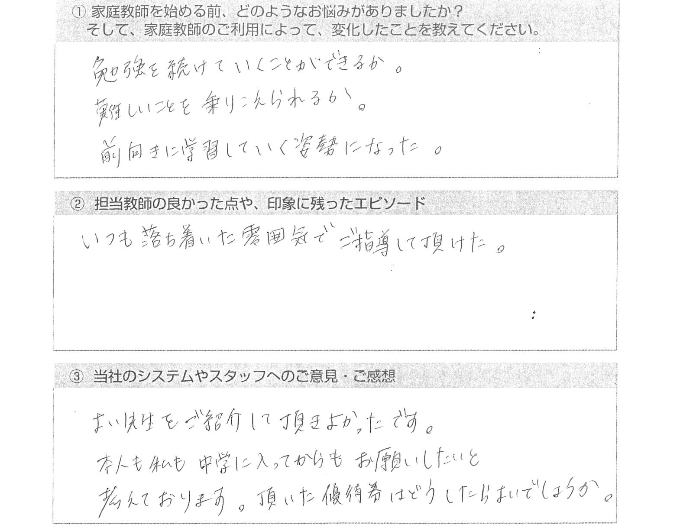 ① 家庭教師を始める前、どのようなお悩みがありましたか？
そして、家庭教師のご利用によって、変化したことを教えてください。
勉強を続けていくことができるか。
難しいことを乗りこえられるか。
前向きに学習していく姿勢になった。
② 担当教師の良かった点や、印象に残ったエピソード
いつも落ち着いた雰囲気でご指導して頂けた。
③ 当社のシステムやスタッフへのご意見・ご感想
よい先生をご紹介して頂きよかったです。
本人も私も中学に入ってからもお願いしたいと
考えております。頂いた優待券はどうしたらよいでしょうか。